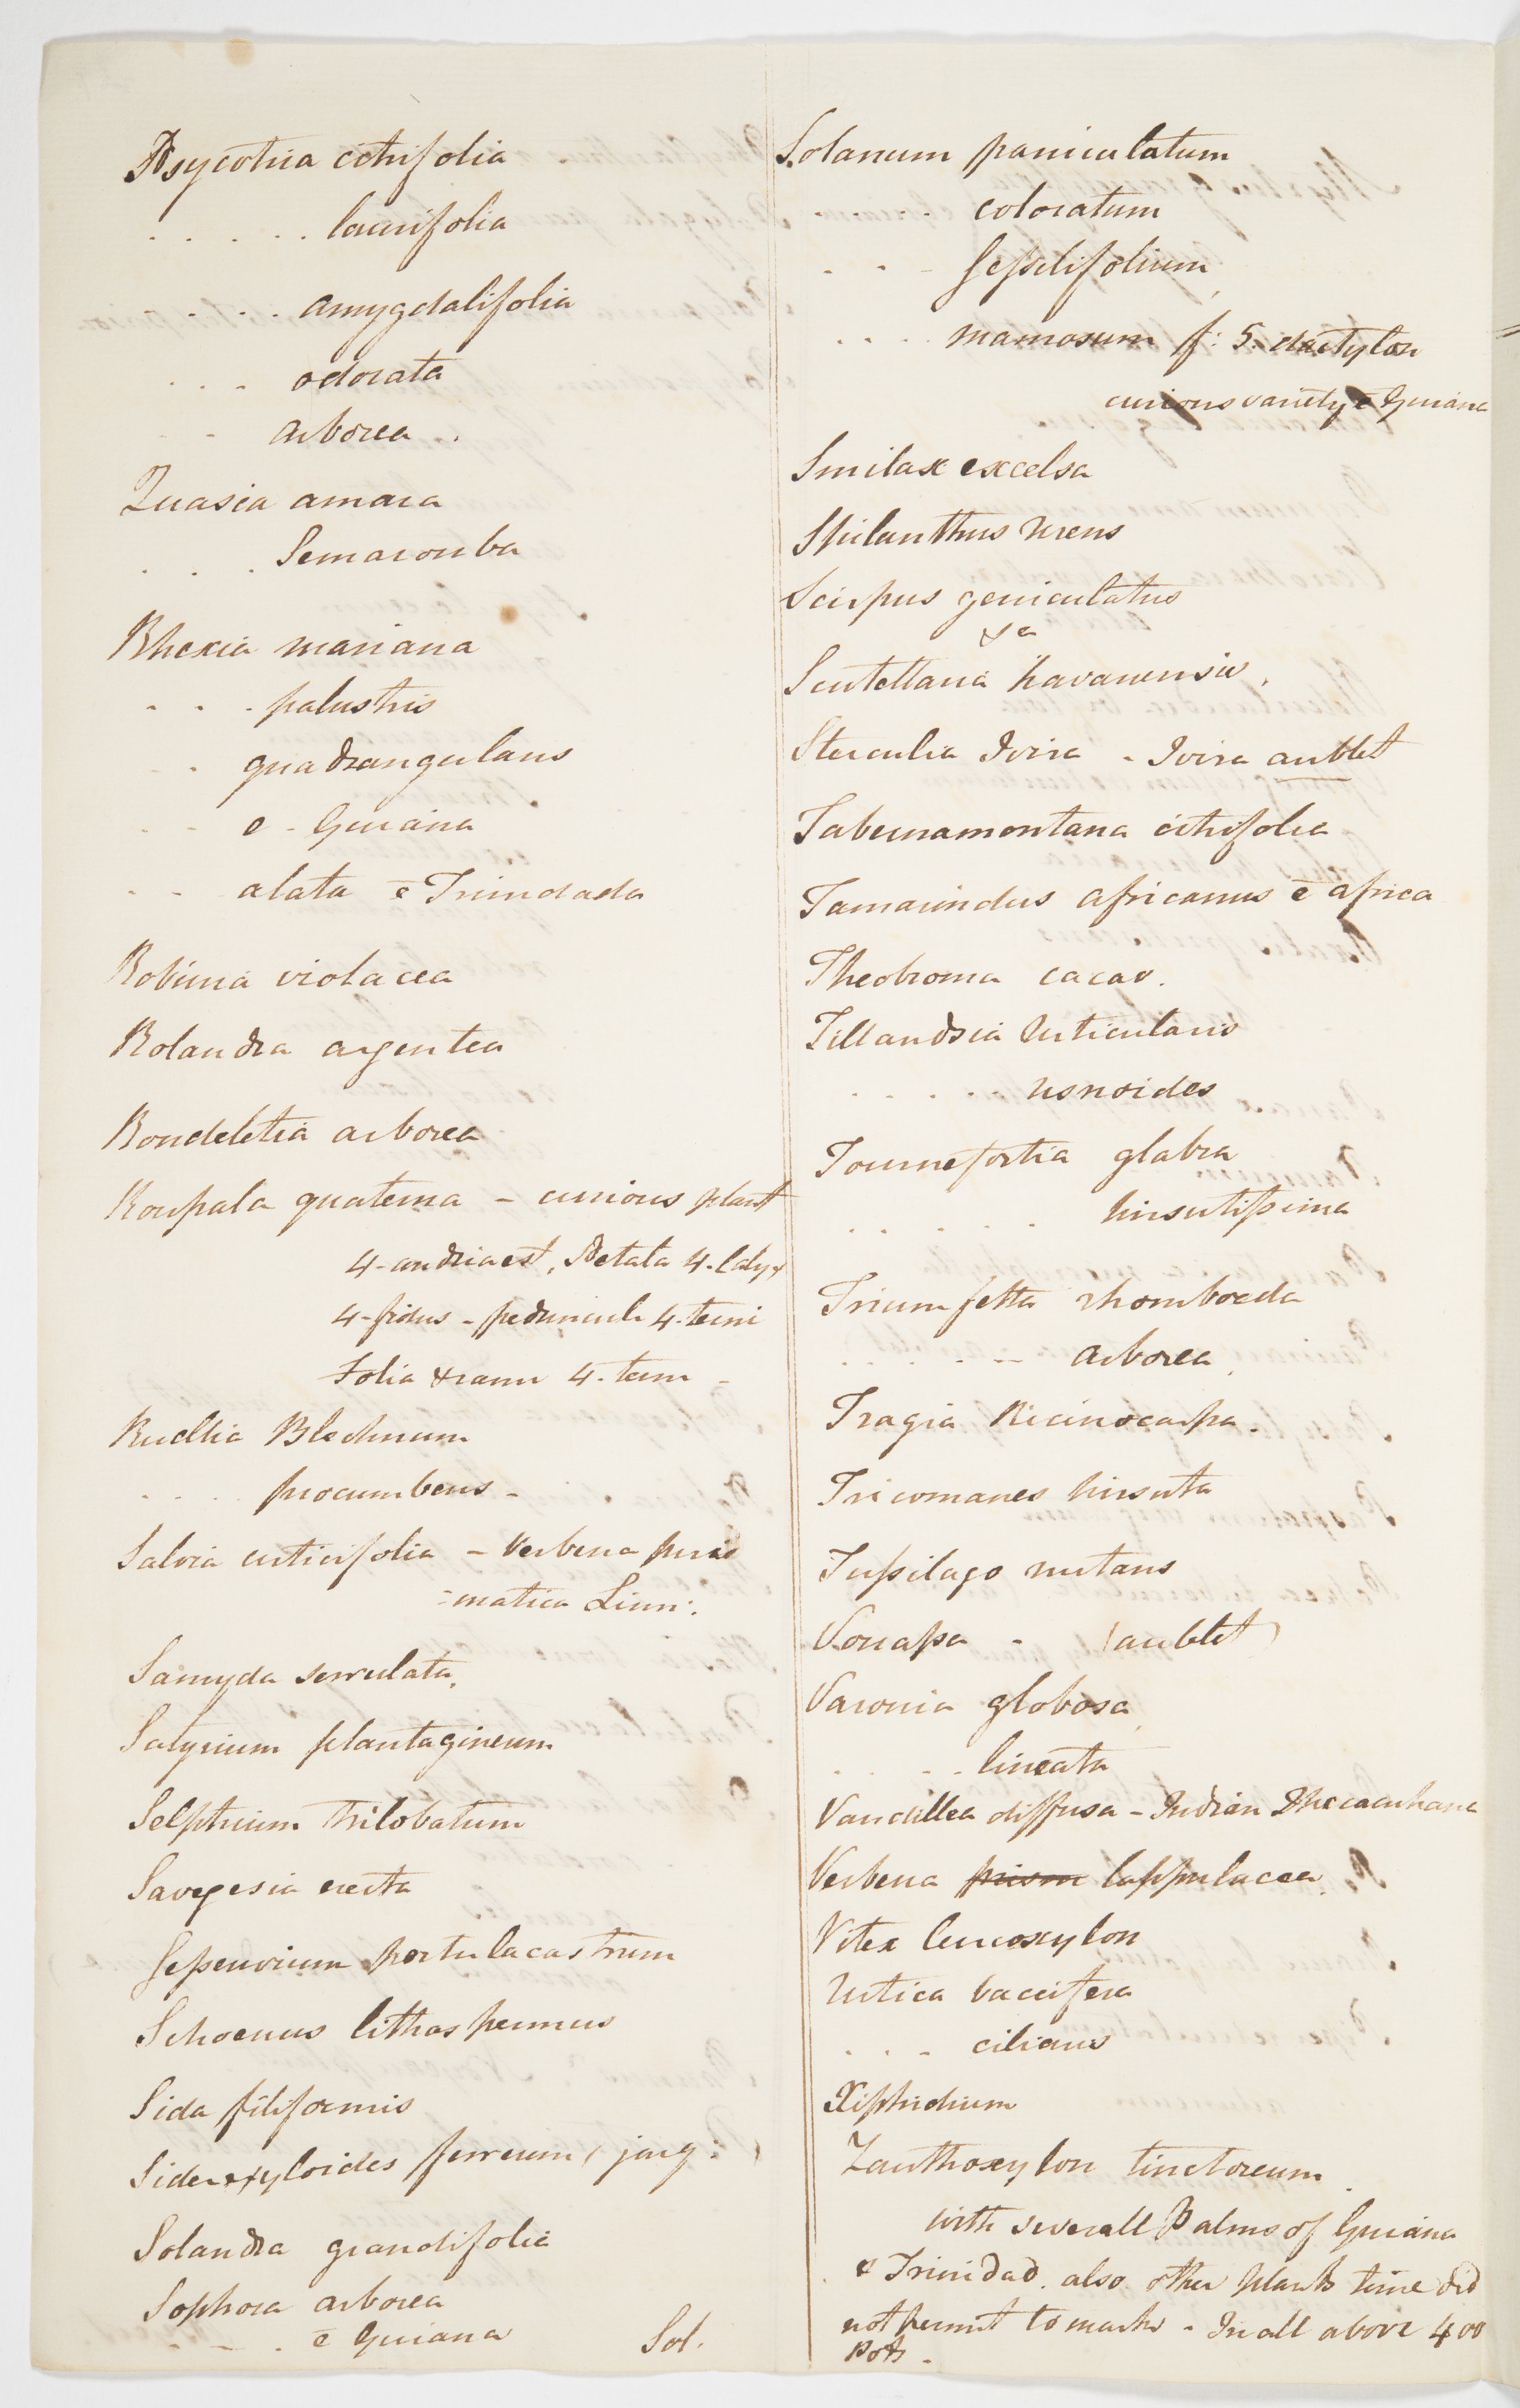 Psycotria citrifolia
. . . . . laurifolia
. . . . amygdalifolia
. . . odorata
. . arborea .
Quasia amara
. . . Semarouba
Rhexia mariana
. . . palustris
. . quadrangularis
. . e - Guiana
. . alata ē Trindada
Robinia violacea
Rolandra argentea
Rondeletia arborea
Roupala quaterna - curious plant
4-andria est, Petala 4. Calyx
4-fidus - peduncul. 4-terni
Folia & rami 4-terni -
Ruellia Blechnum
. . . . procumbens -
Salvia urticifolia - Verbena pris
=matica Linn:.
Samyda serrulata.
Satyrium plantagineum
Selphium trilobatum
Savegesia erecta
Seseuvium portulacastrum
Schoenus lithospermus
Sida filiformis
Sideroxyloides ferreum ( jacq: )
Solandra grandifolia
Sophora arborea
. . . ē Guiana
Sol.
Solanum paniculatum
. . . . coloratum
. . . sessilifolium
. . . . mamosum f: 5. dactylon
curious variety ē Guiana
Smilax excelsa
Spilanthus Urens
Scirpus geniculatus
&c
Scutellaria havanensis .
Sterculia Ivira - Ivira aublet
Tabernamontana citrifolia
Tamarindus africanus ē africa
Theobroma cacao.
Tillandsia Utricularis
. . . . . usnoides
Tournefortia glabra
. . . . . hirsutissima
Triumfetta rhomboeda
. . . . . arborea
Tragia Ricinocarpa.
Tricomanes hirsuta
Tussilago nutans
Vouapa - (aublet)
Varonia globosa
. . . . lineata
Vandellea diffusa - Indian Ipecacuhana
Verbena prism lappulacea
Vitex leucoxylon
Urtica baccifera
. . . ciliaris
Xiphidium
Zanthoxylon tinctoreum
with severall Palms of Guiana
& Trinidad. also other plants time did
not permit to mark - In all above 400
Pots -